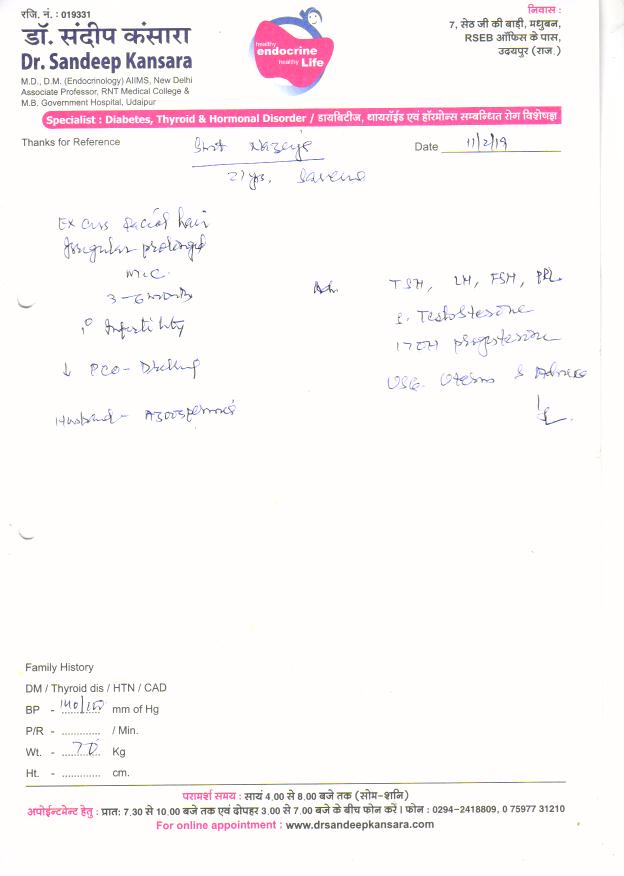 रजि. नं. : 019331
डॉ. संदीप कंसारा
Dr. Sandeep Kansara
M.D., D.M. (Endocrinology) AIIMS, New Delhi
Associate Professor, RNT Medical College &
M.B. Government Hospital, Udaipur
healthy
endocrine
healthy Life
निवास :
7, सेठ जी की बाड़ी, मधुबन,
RSEB ऑफिस के पास,
उदयपुर (राज.)
Specialist : Diabetes, Thyroid & Hormonal Disorder / डायबिटीज, थायरॉईड एवं हॉरमोन्स सम्बन्धित रोग विशेषज्ञ
Thanks for Reference
Date 11/2/19
Excess facial hair
Irregular prolonged
M.C.
3-6 months
1° Infertility
↓ PCO-
Husband -
TSH, LH, FSH, PRL
S. Testosterone
17OH progesterone
USG. Uterus &
Family History
DM / Thyroid dis / HTN / CAD
BP - 140/100 mm of Hg
P/R - ............. / Min.
Wt. - 70 Kg
Ht. - ............. cm.
परामर्श समय : सायं 4.00 से 8.00 बजे तक (सोम-शनि)
अपोईन्टमेन्ट हेतु : प्रात: 7.30 से 10.00 बजे तक एवं दोपहर 3.00 से 7.00 बजे के बीच फोन करें। फोन : 0294-2418809, 0 75977 31210
For online appointment : www.drsandeepkansara.com